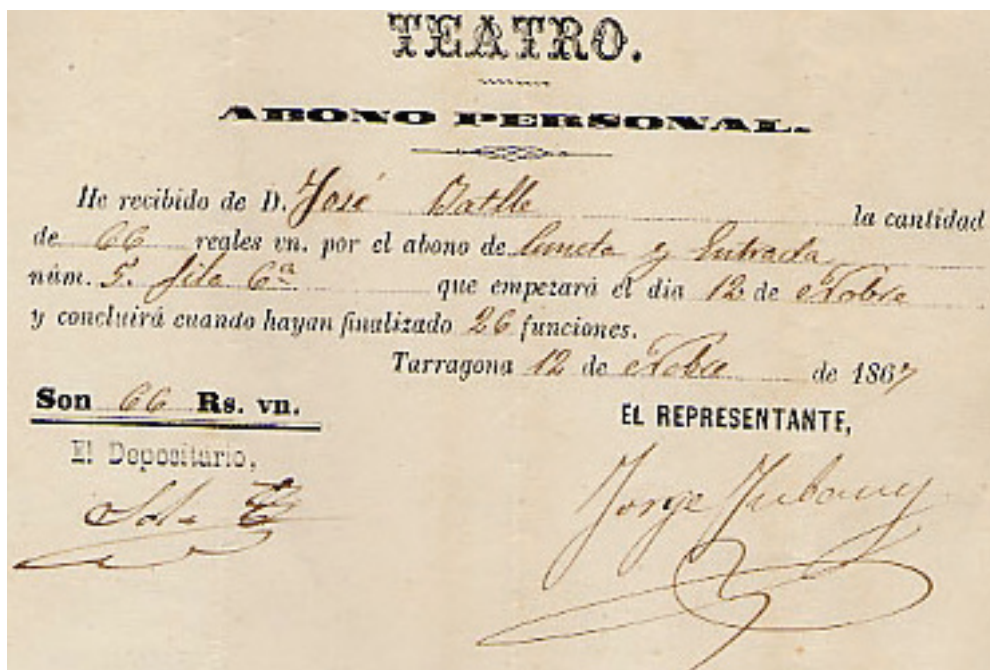 TEATRO.
ABONO PERSONAL.
He recibido de D. José Batlle la cantidad
de 66 reales vn. por el abono de luneta y Entrada
núm. 5. fila 6ª que empezará el dia 12 de Octobre
y concluirá cuando hayan finalizado 26 funciones.
Tarragona 12 de Octobre de 1867
Son 66 Rs. vn.
EL REPRESENTANTE,
El Depositario,
Jorge